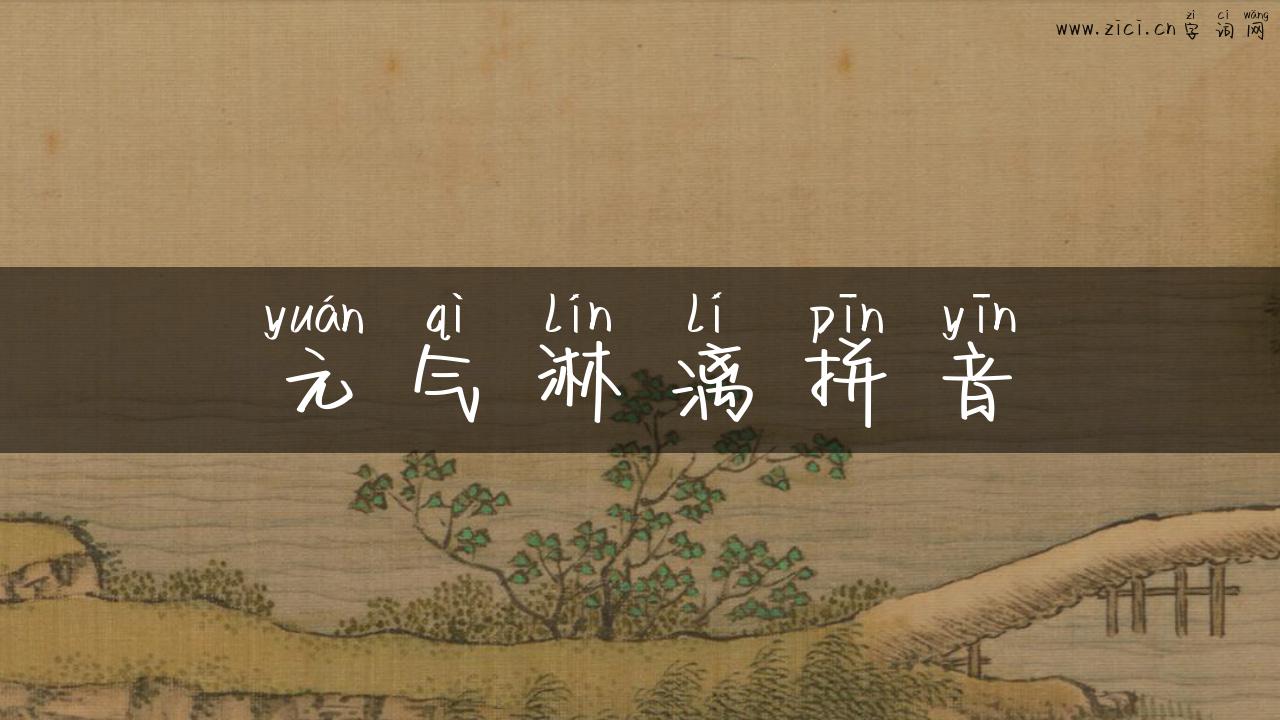 zì cí wǎng
www.zici.cn 字词网
yuán qì lín lí pīn yīn
元气淋漓拼音